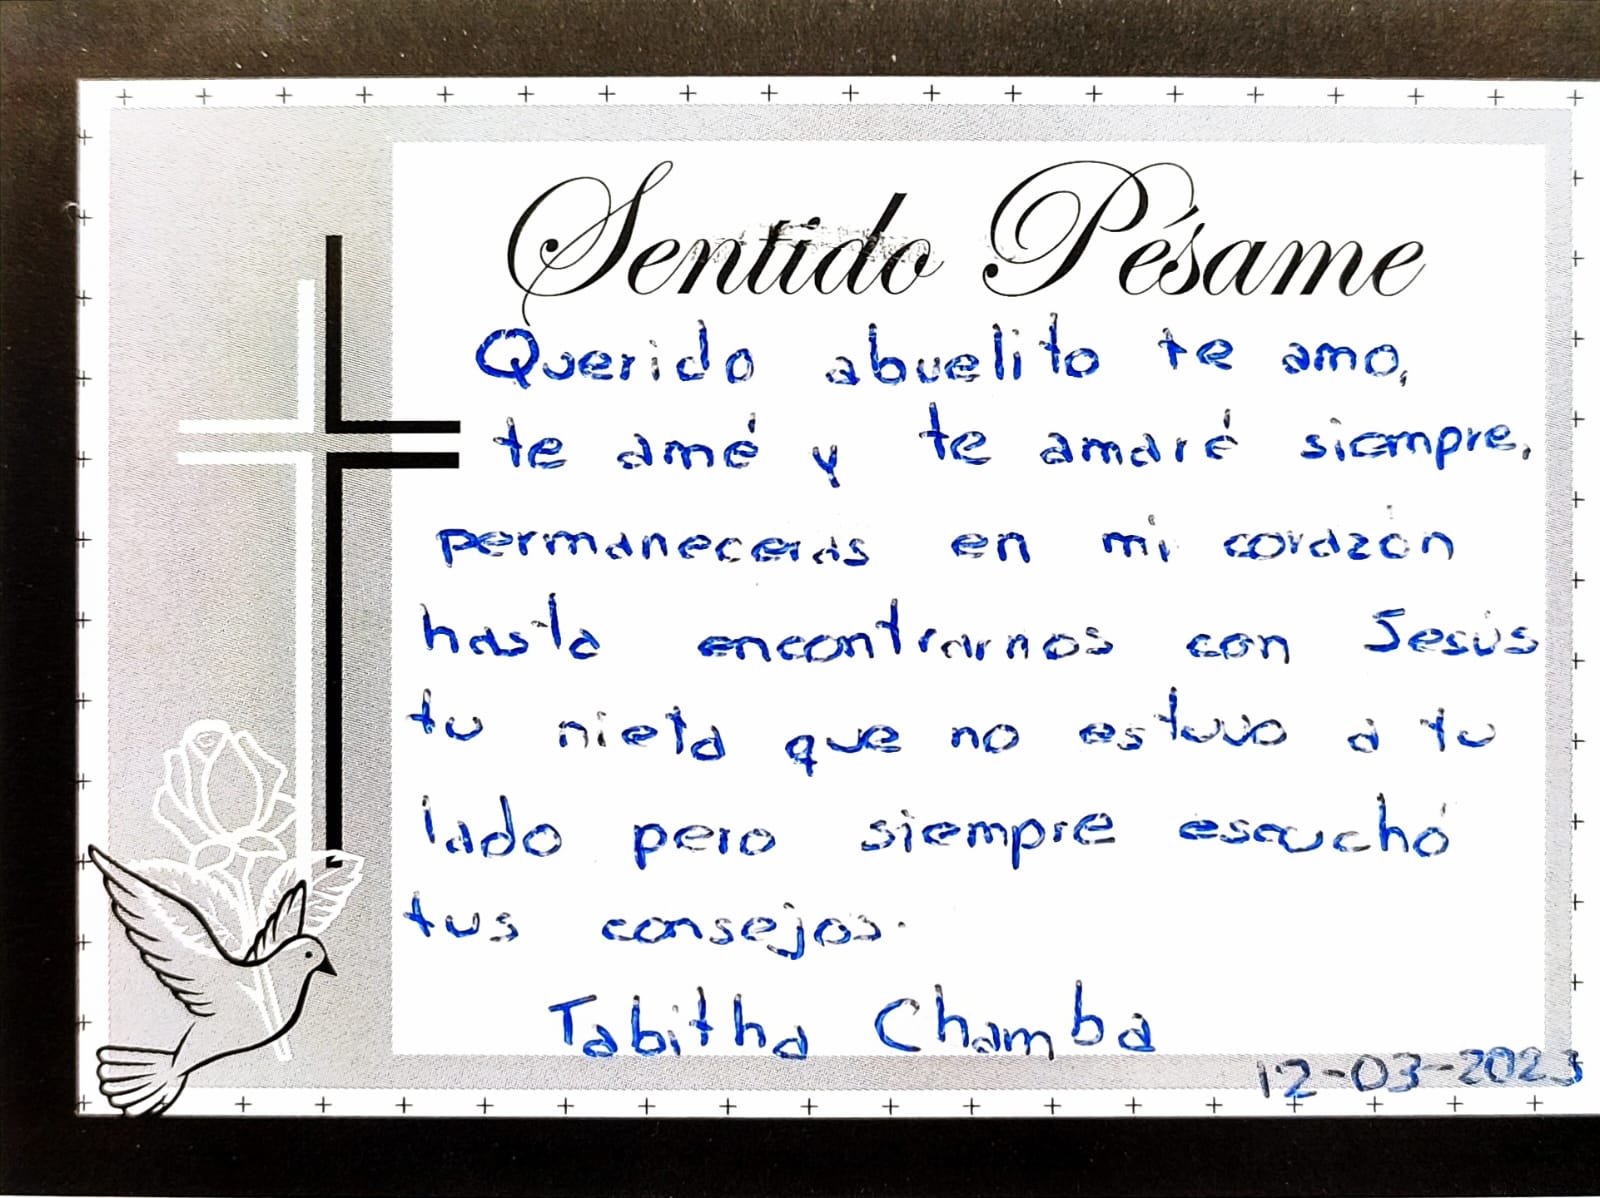 Sentido Pésame
Querido abuelito te amo,
te amé y te amaré siempre,
permaneceras en mi corazón
hasta encontrarnos con Jesús
tu nieta que no estuvo a tu
lado pero siempre escuchó
tus consejos.
Tabitha Chamba
12-03-2023